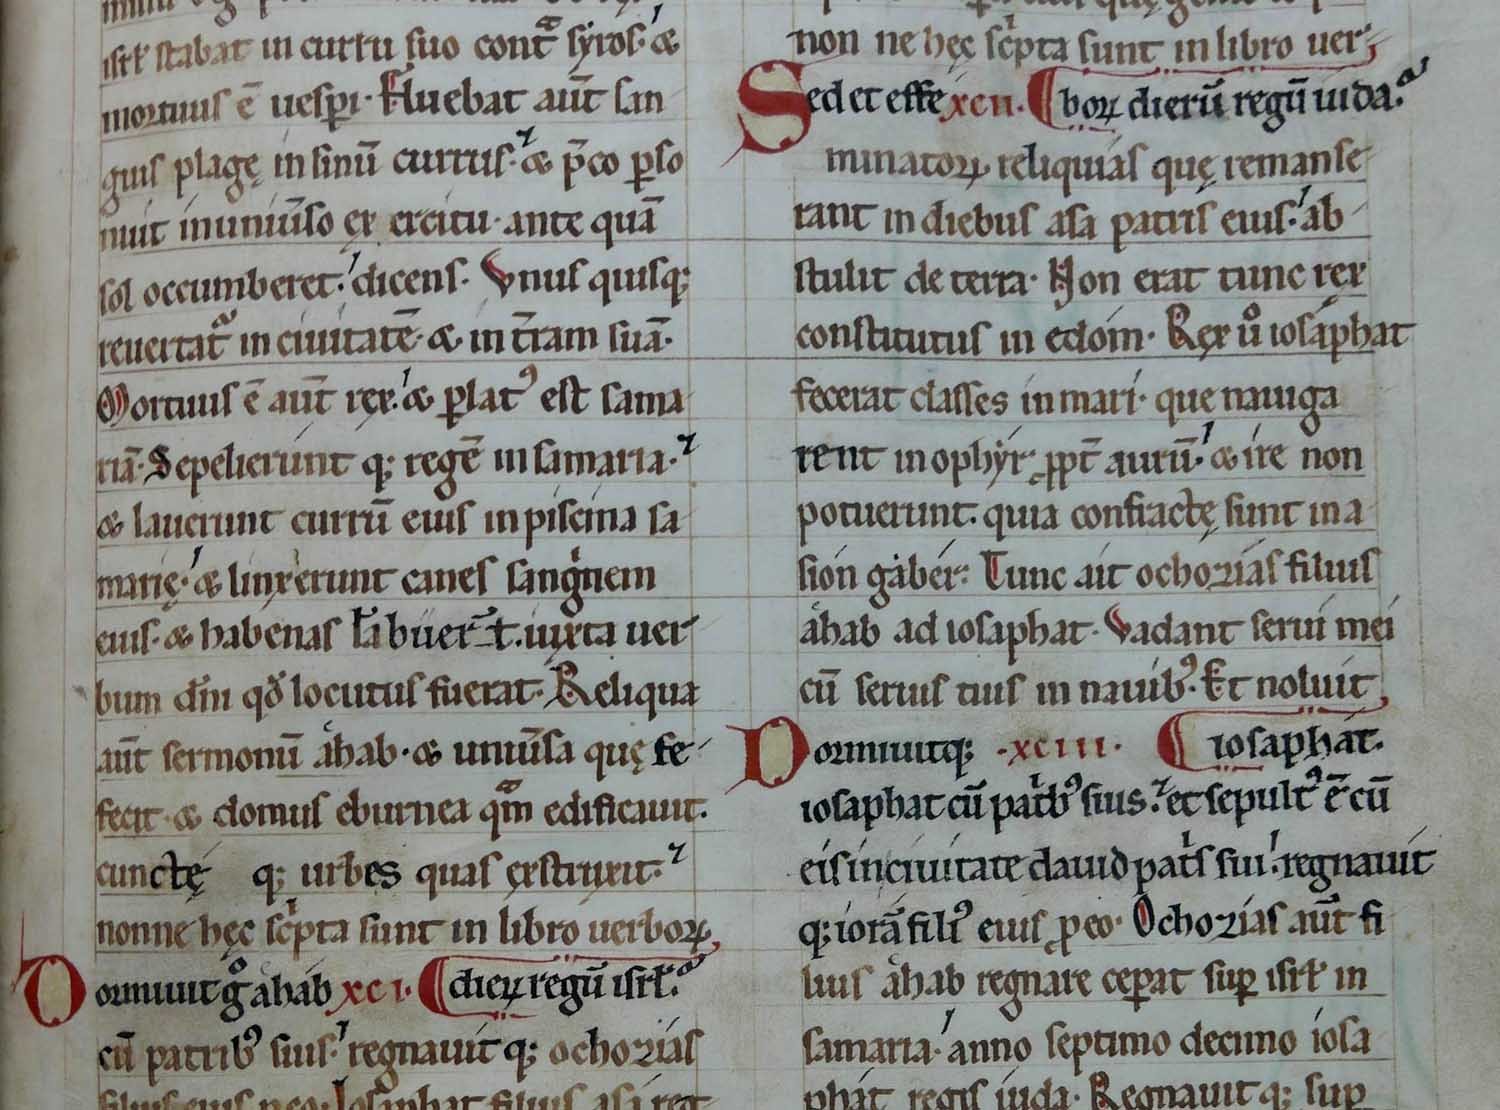 isrł stabat in curru suo cont̄ᵃ syros· &
mortuus ē uesp̱i· Fluebat aūt san
guis plagę in sinū currus· & p̄co p̱so
nuit in uniūso exercitu· ante quā
sol occumberet· dicens. Vnus quisq;
reuertat᷑ in ciuitatē· & in t̄ram suā·
Mortuus ē aūt rex· & p̱latꝰ est sama
riā· Sepelierunt q; regē in samaria·
& lauerunt currū eius in piscina sa
marię· & linxerunt canes sangⁱnem
eius· & habenas łabuer̄t. iuxta uer
bum dn̄i qđ locutus fuerat· Reliqua
aūt sermonū ahab· & uniūsa quę fe
fecit· & domus eburnea qᵃm edificauit·
cunctę q; urbes quas exstruxit·
nonne hęc scⁱpta sunt in libro uerboꝝ
Dormiuit gͦ ahab xci· dieꝝ regū isrł·
cū patribꝰ suis· regnauit q; ochozias
filius eius p̱ eo· Iosaphat filius asa reg
non ne hęc scⁱpta sunt in libro uer
Sed et effe xcii· boꝝ dierū regū iuda·
minatoꝝ reliquias quę remanse
rant in diebus asa patris eius· ab
stulit de terra· Non erat tunc rex
constitutus in edom· Rex uͦ iosaphat
fecerat classes in mari· que nauiga
rent in ophyr ꝓpt̄ aurū· & ire non
potuerunt. quia confractę sunt in a
sion gaber· Tunc ait ochozias filius
ahab ad iosaphat· Vadant serui mei
cū seruis tuis in nauibꝰ· Et noluit
Dormiuitq; ·xciii· iosaphat.
iosaphat cū patⁱbꝰ suis· et sepultꝰ ē cū
eis in ciuitate dauid patⁱs sui· regnauit
q; iorā filiꝰ eius ꝓ eo· Ochozias aūt fi
lius ahab regnare cep̱at sup̱ isrł in
samaria· anno septimo decimo iosa
phat regis iuda· Regnauit q; sup̱